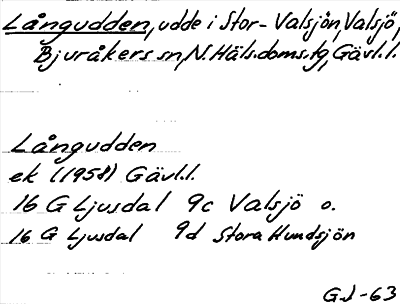 Långudden, udde i Stor-Valsjön, Valsjö,
Bjuråkers sn, N. Häls. doms. tg, Gävl. l.
Långudden
ek (1958) Gävl. l.
16 G Ljusdal 9c Valsjö o.
16 G Ljusdal 9d Stora Hundsjön
GJ-63